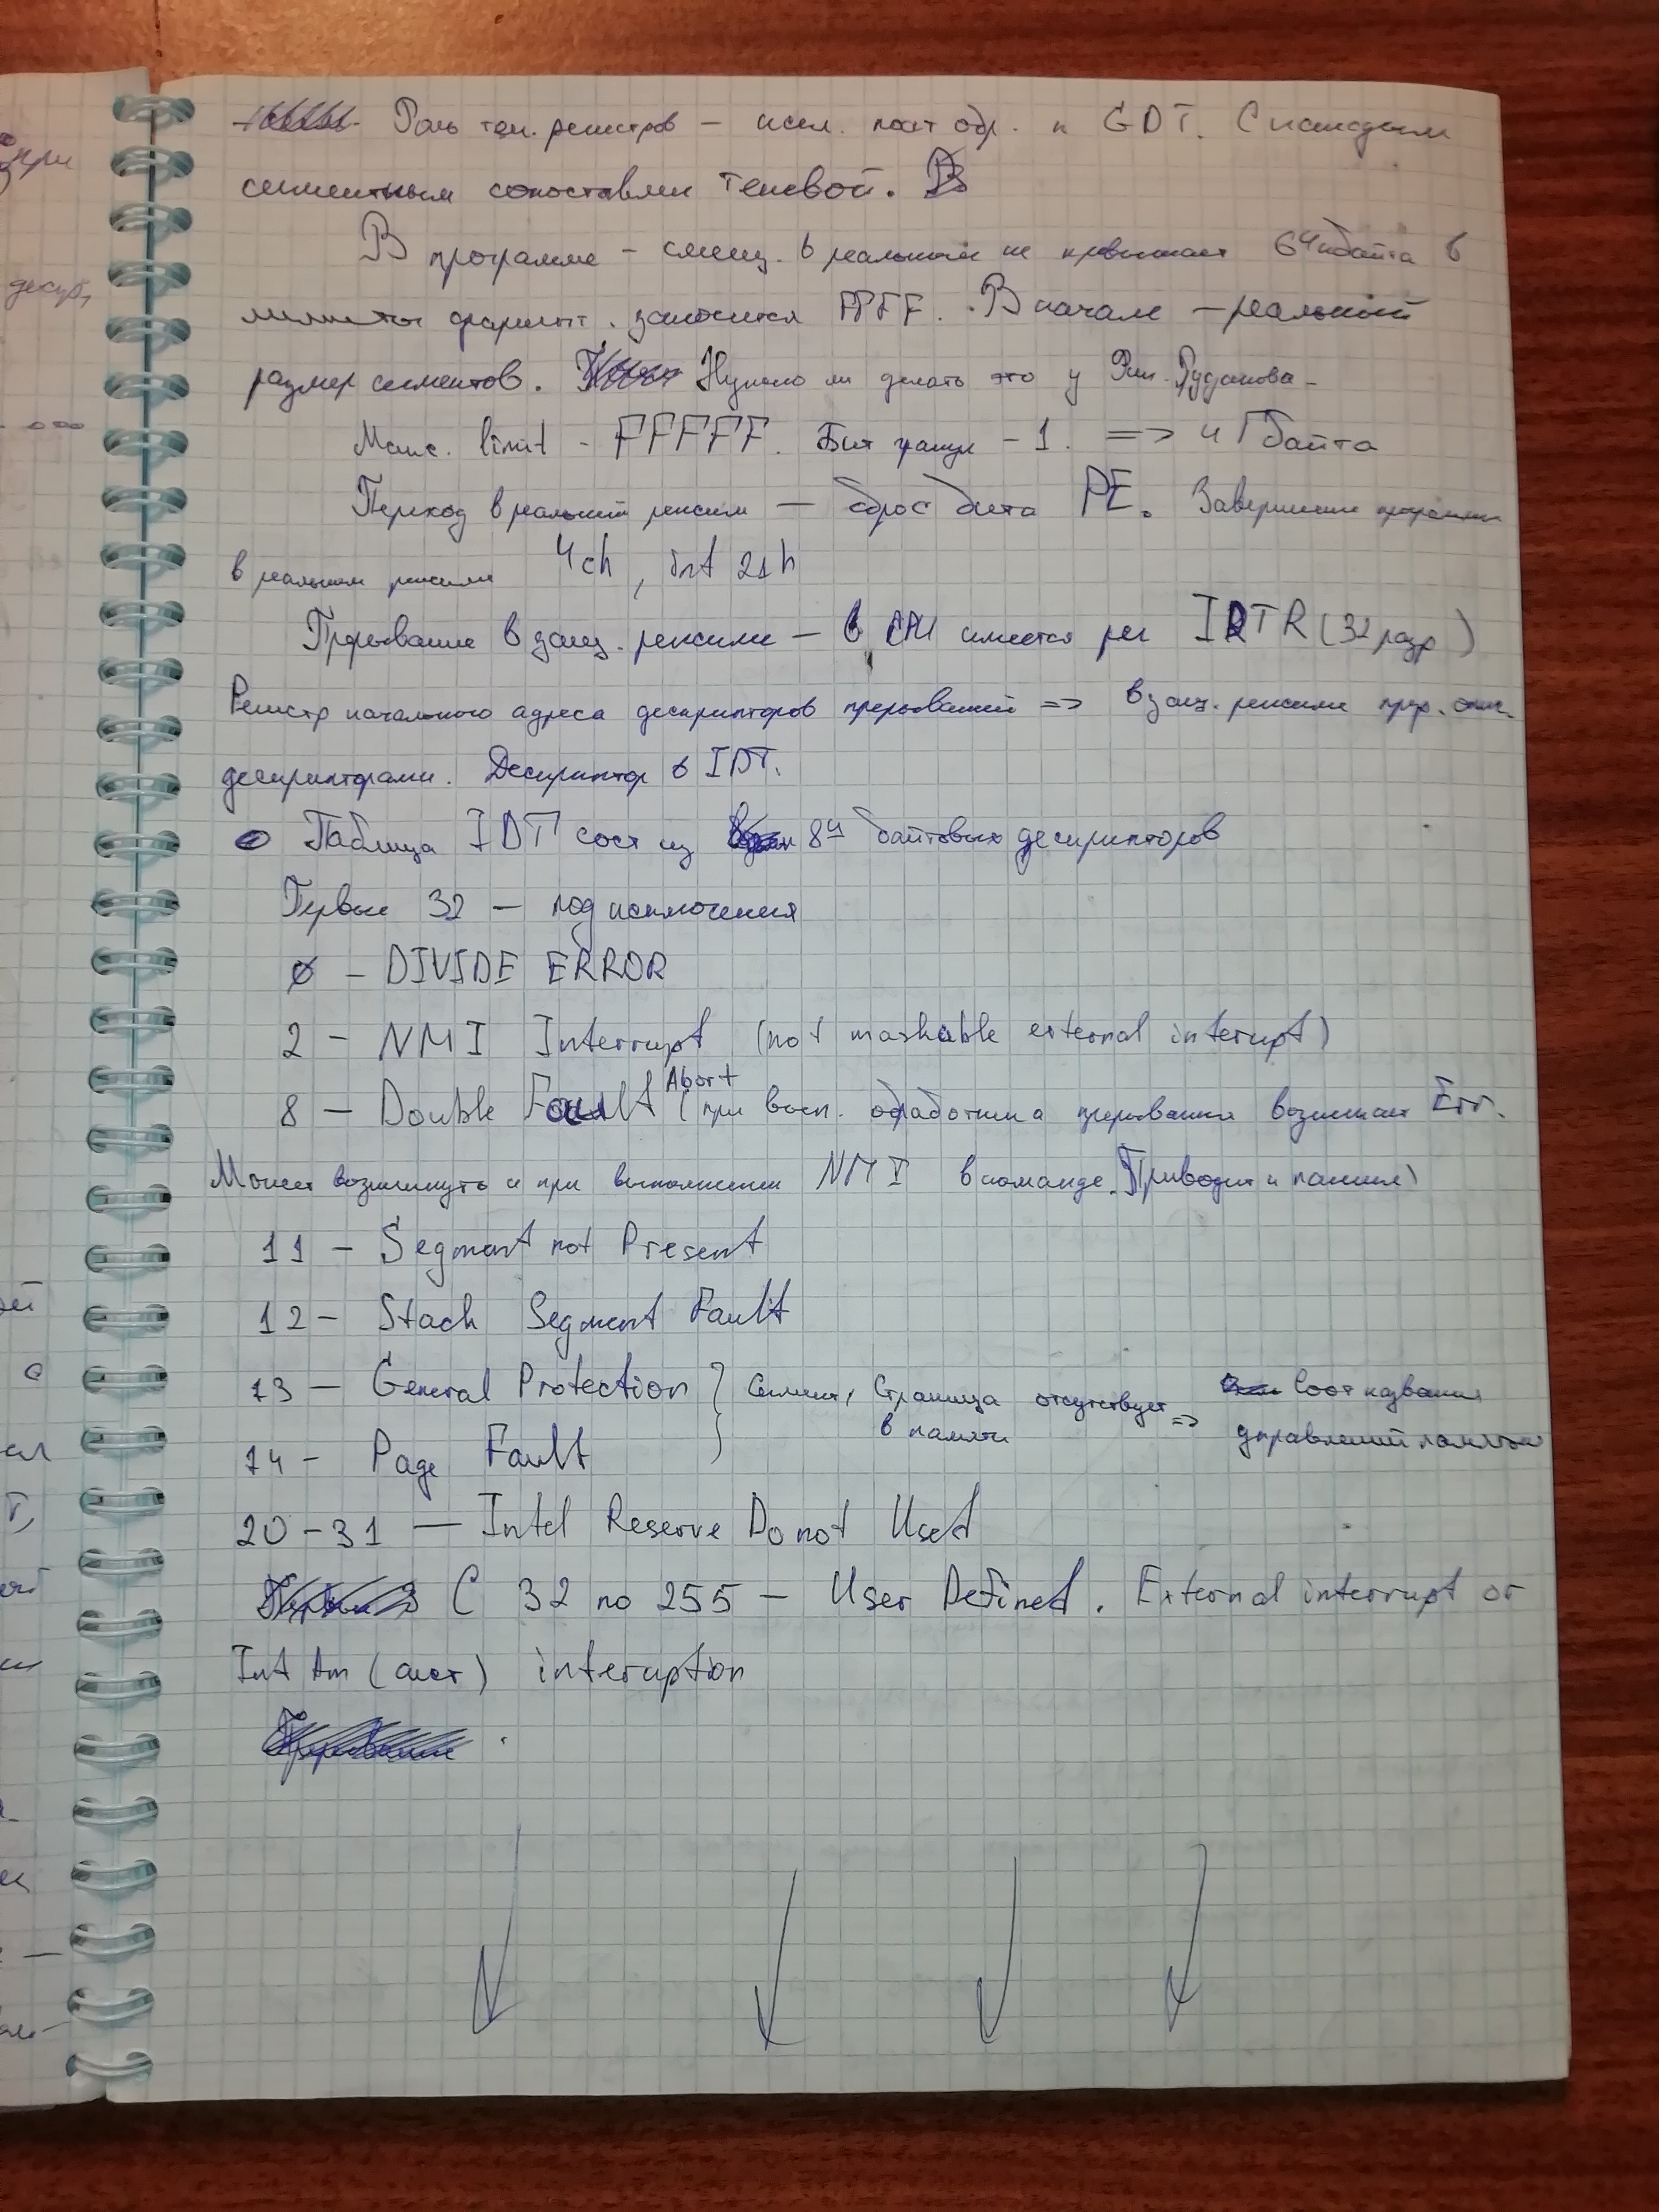 Роль тен. регистров — искл. пост обр. к GDT. С каждым
сегментным сопоставлен теневой.
В программе - смещ. в реальном не превышает 64 кбайта в
фрагмент. заносится FFFF. В начале — реальный
размер сегментов. Нужно ли делать это у Рудакова
Макс. limit - FFFFF. Бит гранул - 1. => 4 Гбайта
Переход в реальный режим — сброс бита PE. Завершение программы
в реальном режиме 4ch, int 21h
Прерывание в защ. режиме — в CPU имеется рег IDTR (32 разр)
Регистр начального адреса дескрипторов прерываний => в защ. режиме прер. опис.
дескрипторами. Дескриптор в IDT.
Таблица IDT сост из 8и байтовых дескрипторов
Первые 32 — под исключения
0 - DIVIDE ERROR
2 - NMI Interrupt (not maskable external interupt)
8 — Double Fault Abort (при вып. обработчика прерывания возникает Err.
Может возникнуть и при выполнении NMI в команде. Приводит к панике)
11 - Segment not Present
12 - Stack Segment Fault
13 — General Protection } Сегмент, Страница отсутствует => Соот названия
в памяти управлений памятью
14 - Page Fault
20-31 — Intel Reserve Do not Used
С 32 по 255 — User Defined. External interrupt or
Int (сист) interuption